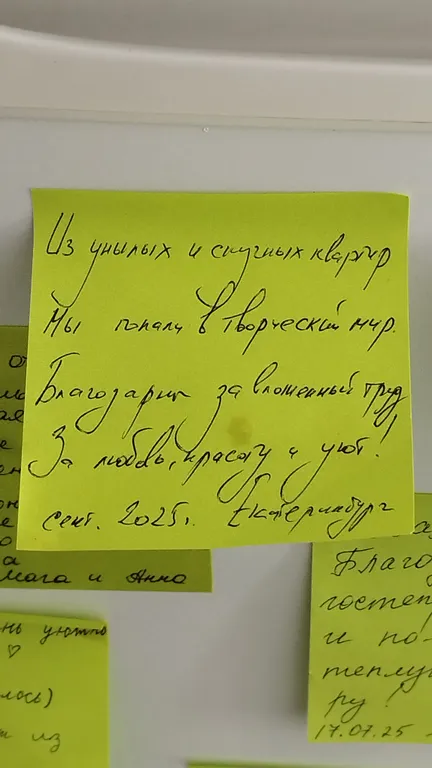 Из унылых и скучных квартир
Мы попали в творческий мир.
Благодарим за вложенный труд
За любовь, красоту и уют!
сент. 2025г. Екатеринбург
и Анна
уютно
♡
лось)
из
Благо
гостеп
и по-
теплу
ру!
17.07.25